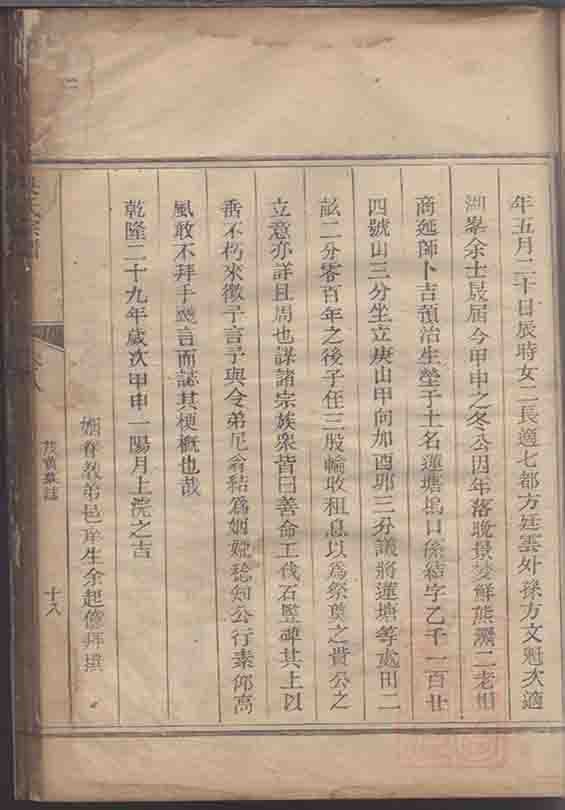 年五月二十日辰時女二長適七都方廷雲外孫方文魁次適
湖羣余士晟届今甲申之冬公因年落晚景麦鮮熊羆二老相
商延師卜吉預治生塋于土名蓮塘塢口徐結字乙千一百廿
四號山三分坐立庚山甲向加酉卯三分議將蓮塘等處田二
畝二分零百年之後子侄三股輪收租息以為祭奠之費公之
立意亦詳且周也謀諸宗族衆皆曰善命工伐石豎碑其上以
垂不朽來徵予言予與令弟尼翁結為姻婭稔知公行素仰高
風敢不拜手幾言而誌其梗概也哉
乾隆二十九年歲次甲申一陽月上浣之吉
姻眷教弟邑庠生余起拜撰
墓誌
十八